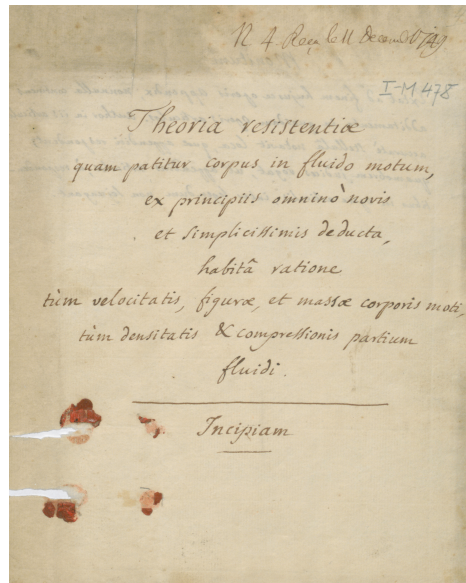 N 4. Reçu le 11 Decemb 1749
I-M 478
Theoria resistentiæ
quam patitur corpus in fluido motum,
ex principiis omninò novis
et simplicissimis deducta,
habitâ ratione
tùm velocitatis, figuræ, et massæ corporis moti,
tùm densitatis & compressionis partium
fluidi.
Incipiam